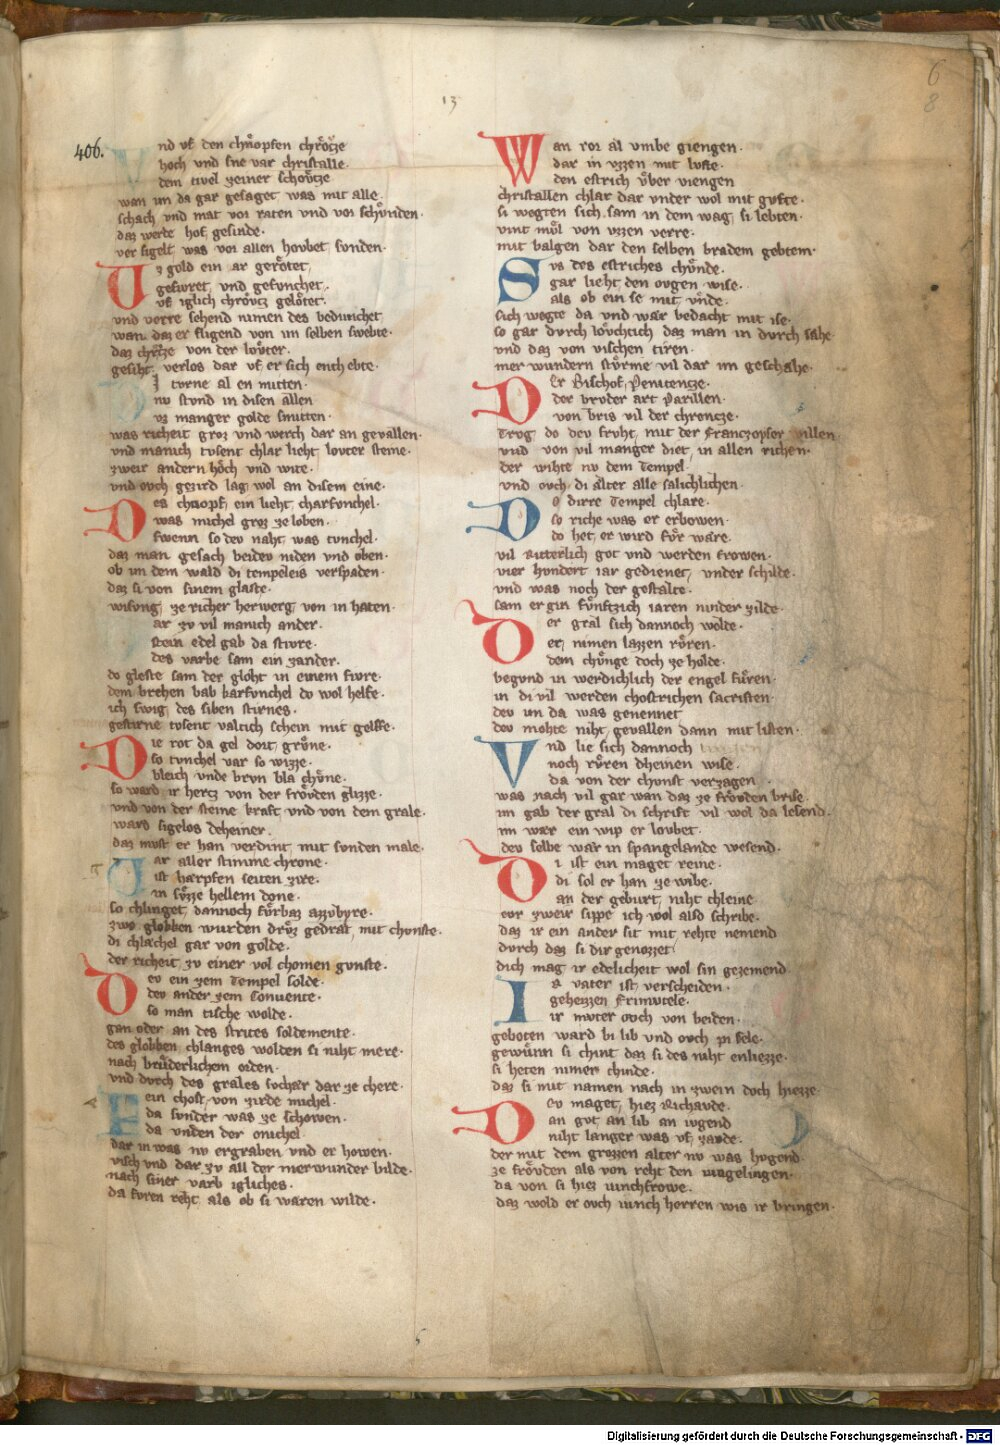 6
8
13
406.
Vnd vf den chnopfen chrovze
hoch vnd sne var christalle.
dem tivel zeiner schovtze
wan im da gar gesaget was mit alle.
schach vnd mat vor raten vnd vor schvnden.
daz werde hof gesinde.
ver sigelt was vor allen hovbet sunden.
Vz gold ein ar gerotet,
gefivret, vnd gefunchet.
vf iglich chrovcz gelotet.
vnd verre sehend nimen des bedunchet
wan daz er flugend von im selben swebte.
daz chrvtze von der lovter.
gesiht verlos dar vf er sich enthebte.
turne al en mitten.
nv stvnd in disen allen
vz manger golde smitten.
was richeit groz vnd werch dar an gevallen.
vnd manich tvsent chlar lieht lovter steine.
zweir andern hoch vnd wite.
vnd ovch gezird lag wol an disem eine.
Des chnopf, ein lieht charfunchel.
was michel groz ze loben.
swenn so dev naht was tunchel.
daz man gesach beidev niden vnd oben.
ob im dem wald di tempeleis verspaden.
daz si von sinem glaste.
wisung ze richer herwerg von in haten.
ar zv vil manich ander.
stein edel gab da stivre.
des varbe sam ein zander.
do gleste sam der gloht in einem fivre.
dem brehen bab karfvnchel do wol helfe.
ich swig des siben stirnes.
gestirne tvsent valtich schein mit gelffe.
Die rot da gel dort, grvne.
so tvnchel var so wizze.
bleich vnde brvn bla chvne.
so ward ir hercz von der frovden glizze.
vnd von der steine kraft vnd von dem grale.
ward sigelos deheiner.
daz mvst er han verdint mit svnden male.
ar aller stimme chrone.
ist hærpfen seiten zire.
in svzze hellem done.
so chlinget, dannoch fvrbaz azzvbyre.
zwo globken wurden droz gedrat, mit chvnste.
di chlachel gar von golde.
der richeit zv einer vol chomen gvnste.
Dev ein zem Tempel solde.
dev ander zem Convente.
so man tische wolde.
gan oder an des strites soldemente.
des globken chlanges wolden si niht mere.
nach brvderlichem orden.
vnd dvrch des grales svchær dar ze chere.
Eein chost, von zirde michel.
da svnder was ze schowen.
da vnden der onichel.
dar in was nv ergraben vnd er howen.
visch vnd dar zv all der merwunder bilde.
nach siner varb igliches.
da fvren reht, als ob si waren wilde.
Wan ror al vmbe giengen.
dar in vzzen mit lvfte.
den estrich vber viengen
christallen chlar dar vnder wol mit gvfte.
si wegten sich sam in dem wag si lebten.
vint mvl von vzzen verre.
mit balgen dar den selben bradem gebtem.
Svs des estriches chvnde.
gar lieht den ovgen wise.
als ob ein se mit vnde.
sich wegte da vnd wær bedacht mit ise.
so gar dvrch lovchtich daz man in dvrch sæhe
vnd daz von vischen tiren.
mer wundern stvrme vil dar inn geschæhe.
Der Bischof, Penitencze.
der brvder art Parillen.
von bris vil der chrencze.
Trvg do dev frvht, mit der Franczoyser willen
vnd von vil manger diet, in allen richen.
der wihte nv dem Tempel.
vnd ovch di alter alle sælichlichen.
Do dirre Tempel chlare.
so riche was er erbowen.
do het, er wird fvr ware.
vil Ritterlich got vnd werden frowen.
vier hvndert iar gedienet, vnder schilde.
vnd was noch der gestalte.
sam er gin fvnftzich iaren ninder zilde.
Der gral sich dannoch wolde.
er, nimen lazzen rvren.
dem chvnge doch ze holde.
begvnd in werdichlich der engel fvren.
in di vil werden chostrichen sacristen.
dev im da was genennet
dev mohte niht, gevallen dann mit listen.
Vnd lie sich dannoch
noch rvren dheinen wise.
da von der chvnst verzagen.
was nach vil gar wan daz ze frovden brise.
im gab der gral di schrift vil wol da lesend.
im wær ein wip er lovbet.
dev selbe wær in spangelande wesend.
Di ist ein maget reine.
di sol er han ze wibe.
an der gebvrt, niht chleine.
vor zweir sippe ich wol also schribe.
daz ir ein ander sit mit rehte nemend
dvrch daz si dir genozzet
dich mag ir edelicheit wol sin gezemend
Ir vater ist verscheiden.
geheizzen Frimvtele.
ir mvter ovch von beiden.
geboten ward bi lib vnd ovch pi sele.
gewunn si chint daz si des niht enliezze.
si heten nimer chinde.
daz si mit namen nach in zwein doch hiezze
Dev maget, hiez Richavde.
an gvt, an lib an ivgend
niht langer was vf zavde.
der mit dem grozzen alter nv was hvgend.
ze frovden als von reht den ivngelingen.
da von si hiez ivnchfrowe.
daz wold er ovch ivnch herren wis ir bringen.
5
Digitalisierung gefördert durch die Deutsche Forschungsgemeinschaft - DFG